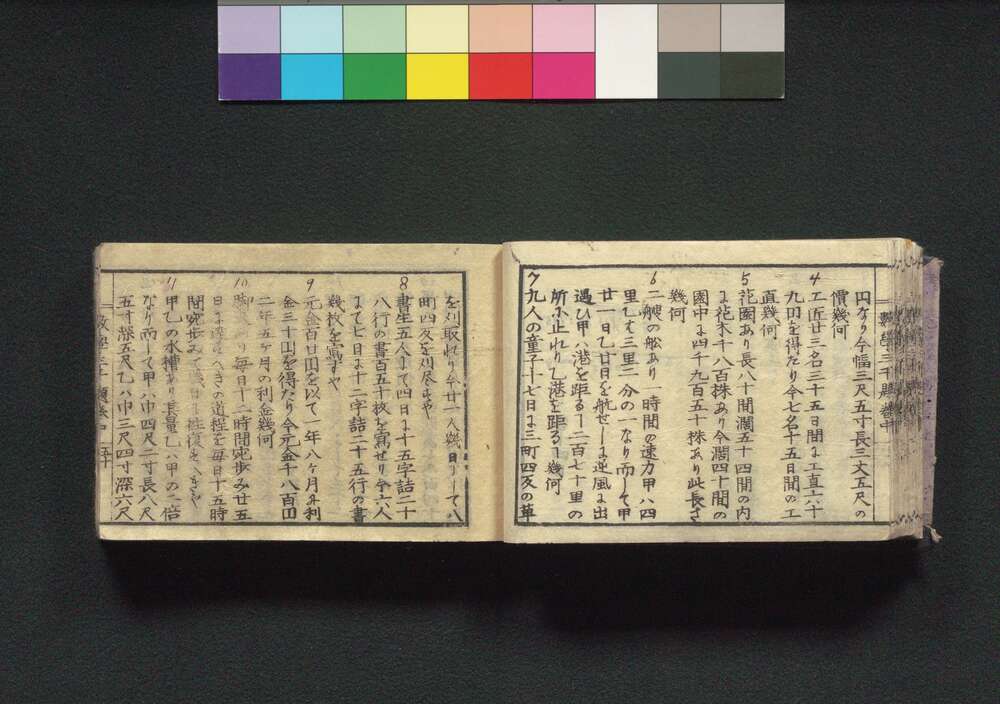 円なり今幅二尺五寸長三丈五尺の
價幾何
4 工匠廿三名三十五日間に工直六十
九円を得たり今七名十五日間の工
直幾何
5 花園あり長八十間濶五十四間の内
に花木千八百株あり今濶四十間の
園中に四千九百五十株あり此長さ
幾何
6 二艘の舩あり一時間の速力甲八四
里乙は三里二分の一なり而して甲
廿一日乙廿日を航せしに逆風に出
遇ひ甲八港を距るヿ二百七十里の
所に止れり乙港を距るヿ幾何
7 九人の童子十七日に三町四反の草
を刈取れり今廿一人幾日にして八
町四反を刈尽すや
8 書生五人にて四日に十五字詰二十
八行の書百五十枚を寫せり今六人
にて七日に十二字詰二十五行の書
幾枚を寫すや
9 元金百廿円を以て一年八ヶ月に利
金三十円を得たり今元金千八百円
二年五ヶ月の利金幾何
10 毎日十二時間宛歩み廿五
日に達すへきの道程を毎日十五時
間宛歩み
11 甲乙の水槽あり其量乙八甲の二倍
なり而して甲八巾四尺二寸長八尺
五寸深五尺乙八巾三尺四寸深六尺